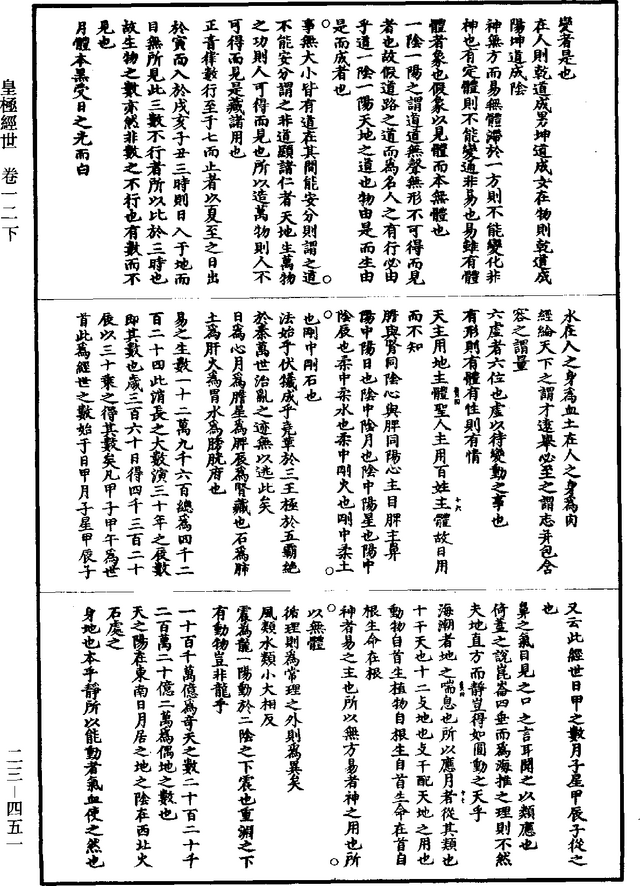 變者是也
在人則乾道成男坤道成女在物則乾道成
陽坤道成陰
神無方而易無體滯於一方則不能變化非
神也有定體則不能變通非易也易雖有體
體者象也假象以見體而本無體也
一陰一陽之謂道道無聲無形不可得而見
者也故假道路之道而為名人之有行必由
乎道一陰一陽天地之道也物由是而生由
是而成者也
事無大小皆有道在其間能安分則謂之道
不能安分謂之非道顯諸仁者天地生萬物
之功則人可得而見也所以造萬物則人不
可得而見是藏諸用也
正音律數行至于七而止者以夏至之日出
於寅而入於戌亥子丑三時則日入于地而
目無所見此三數不行者所以比於三時也
故生物之數亦然非數之不行也有數而不
見也
月體本黑受日之光而白
水在人之身為血土在人之身為肉
經綸天下之謂才遠舉必至之謂志并包含
容之謂量
六虛者六位也虛以待變動之事也
有形則有體有性則有情
天主用地主體聖人主用百姓主體故日用
而不知
膽與腎同陰心與脾同陽心主目脾主鼻
陽中陽日也陰中陰月也陰中陽星也陽中
陰辰也柔中柔水也柔中剛火也剛中柔土
也剛中剛石也
法始乎伏犧成乎堯革於三王極於五霸絕
於秦萬世治亂之迹無以逃此矣
日為心月為膽星為脾辰為腎藏也石為肺
土為肝火為胃水為膀胱府也
易之生數一十二萬九千六百總為四千三
百二十四此消長之大數演三十年之辰數
即其數也歲三百六十日得四千三百二十
辰以三十乘之得其數矣凡甲子甲午為世
首此為經世之數始于日甲月子星甲辰子
又云此經世日甲之數月子星甲辰子從之
也
鼻之氣目見之口之言耳聞之以類應也
倚蓋之說崑崙四垂而為海推之理則不然
夫地直方而靜豈得如圓動之天乎
海潮者地之喘息也所以應月者從其類也
十干天也十二支地也支干配天地之用也
動物自首生植物自根生自首生命在首自
根生命在根
神者易之主也所以無方易者神之用也所
以無體
循理則為常理之外則為異矣
風類水類小大相反
震為龍一陽動於二陰之下震也重淵之下
有動物豈非龍乎
一十百千萬億為奇天之數二十百二十千
二百萬二十億二萬為偶地之數也
天之陽在東南日月居之地之陰在西北火
石處之
身地也本乎靜所以能動者氣血使之然也
皇極經世 卷一二下
二三—四五一